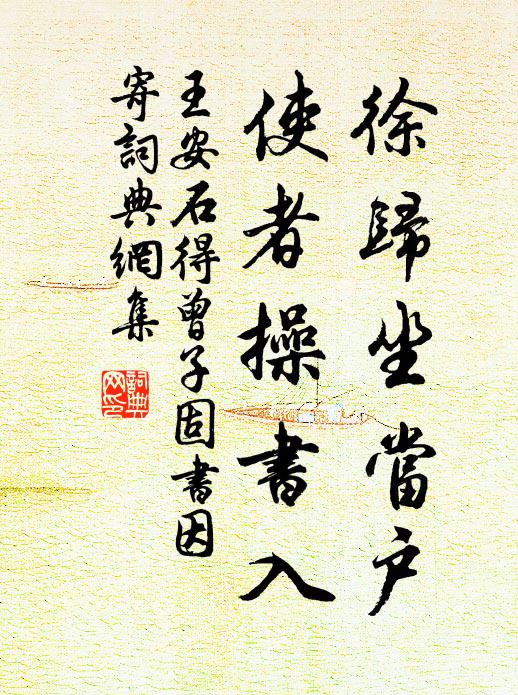 徐歸坐當户
使者操書入
王安石得曾子固書因
寄詞典網集
詞典
网印